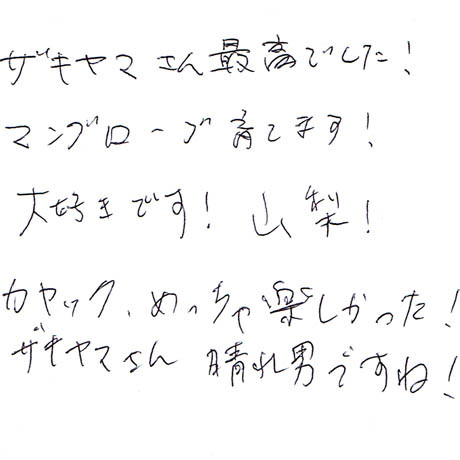 ザキヤマさん最高でした!
マングローブ育てます!
大好きです!山梨!
カヤック、めっちゃ楽しかった!
ザキヤマさん 晴れ男ですね!